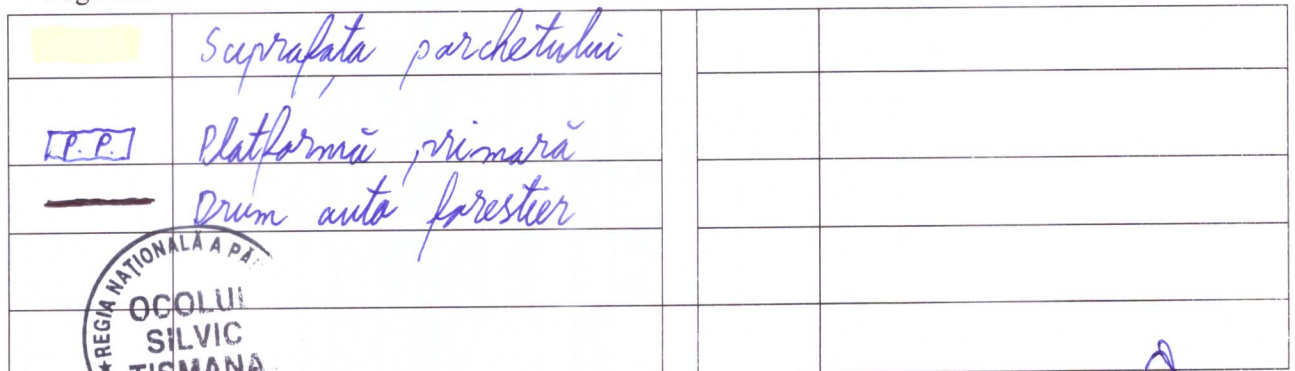 Suprafața parchetului
P.P. Platformă primară
Drum auto forestier
★ REGIA NAȚIONALĂ A PĂ
OCOLUL
SILVIC
TISMANA